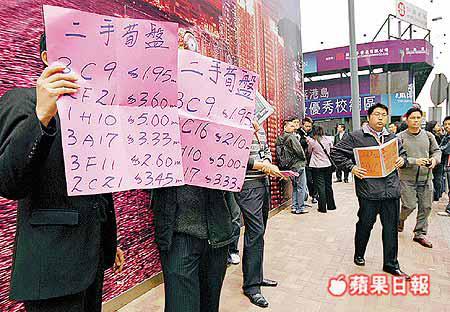 二手荀盤
3C9 $1.95m
2F21 $3.60m
1H10 $5.00m
3A17 $3.33m
3F11 $2.60m
2C21 $3.45m
二手荀盤
3C9 $1.95
C16 $2.10
H10 $5.00m
A17 $3.33
香港島
優秀校網區
蘋果日報
蘋果日報